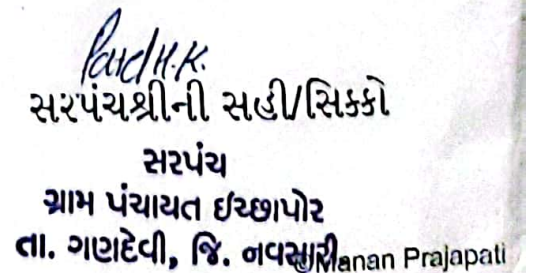 Patel H.K.
સરપંચશ્રીની સહી/સિક્કો
સરપંચ
ગ્રામ પંચાયત ઈચ્છાપોર
તા. ગણદેવી, જિ. નવસારી
Manan Prajapati